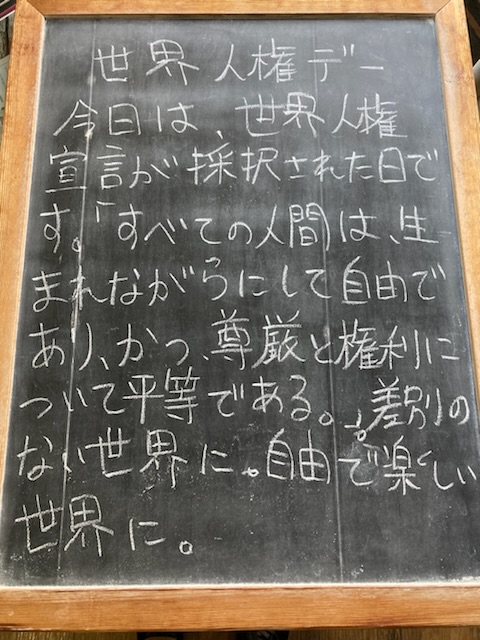 世界人権デー
今日は、世界人権
宣言が採択された日で
す。「すべての人間は、生
まれながらにして自由で
あり、かつ、尊厳と権利に
ついて平等である。」差別の
ない世界に。自由で楽しい
世界に。